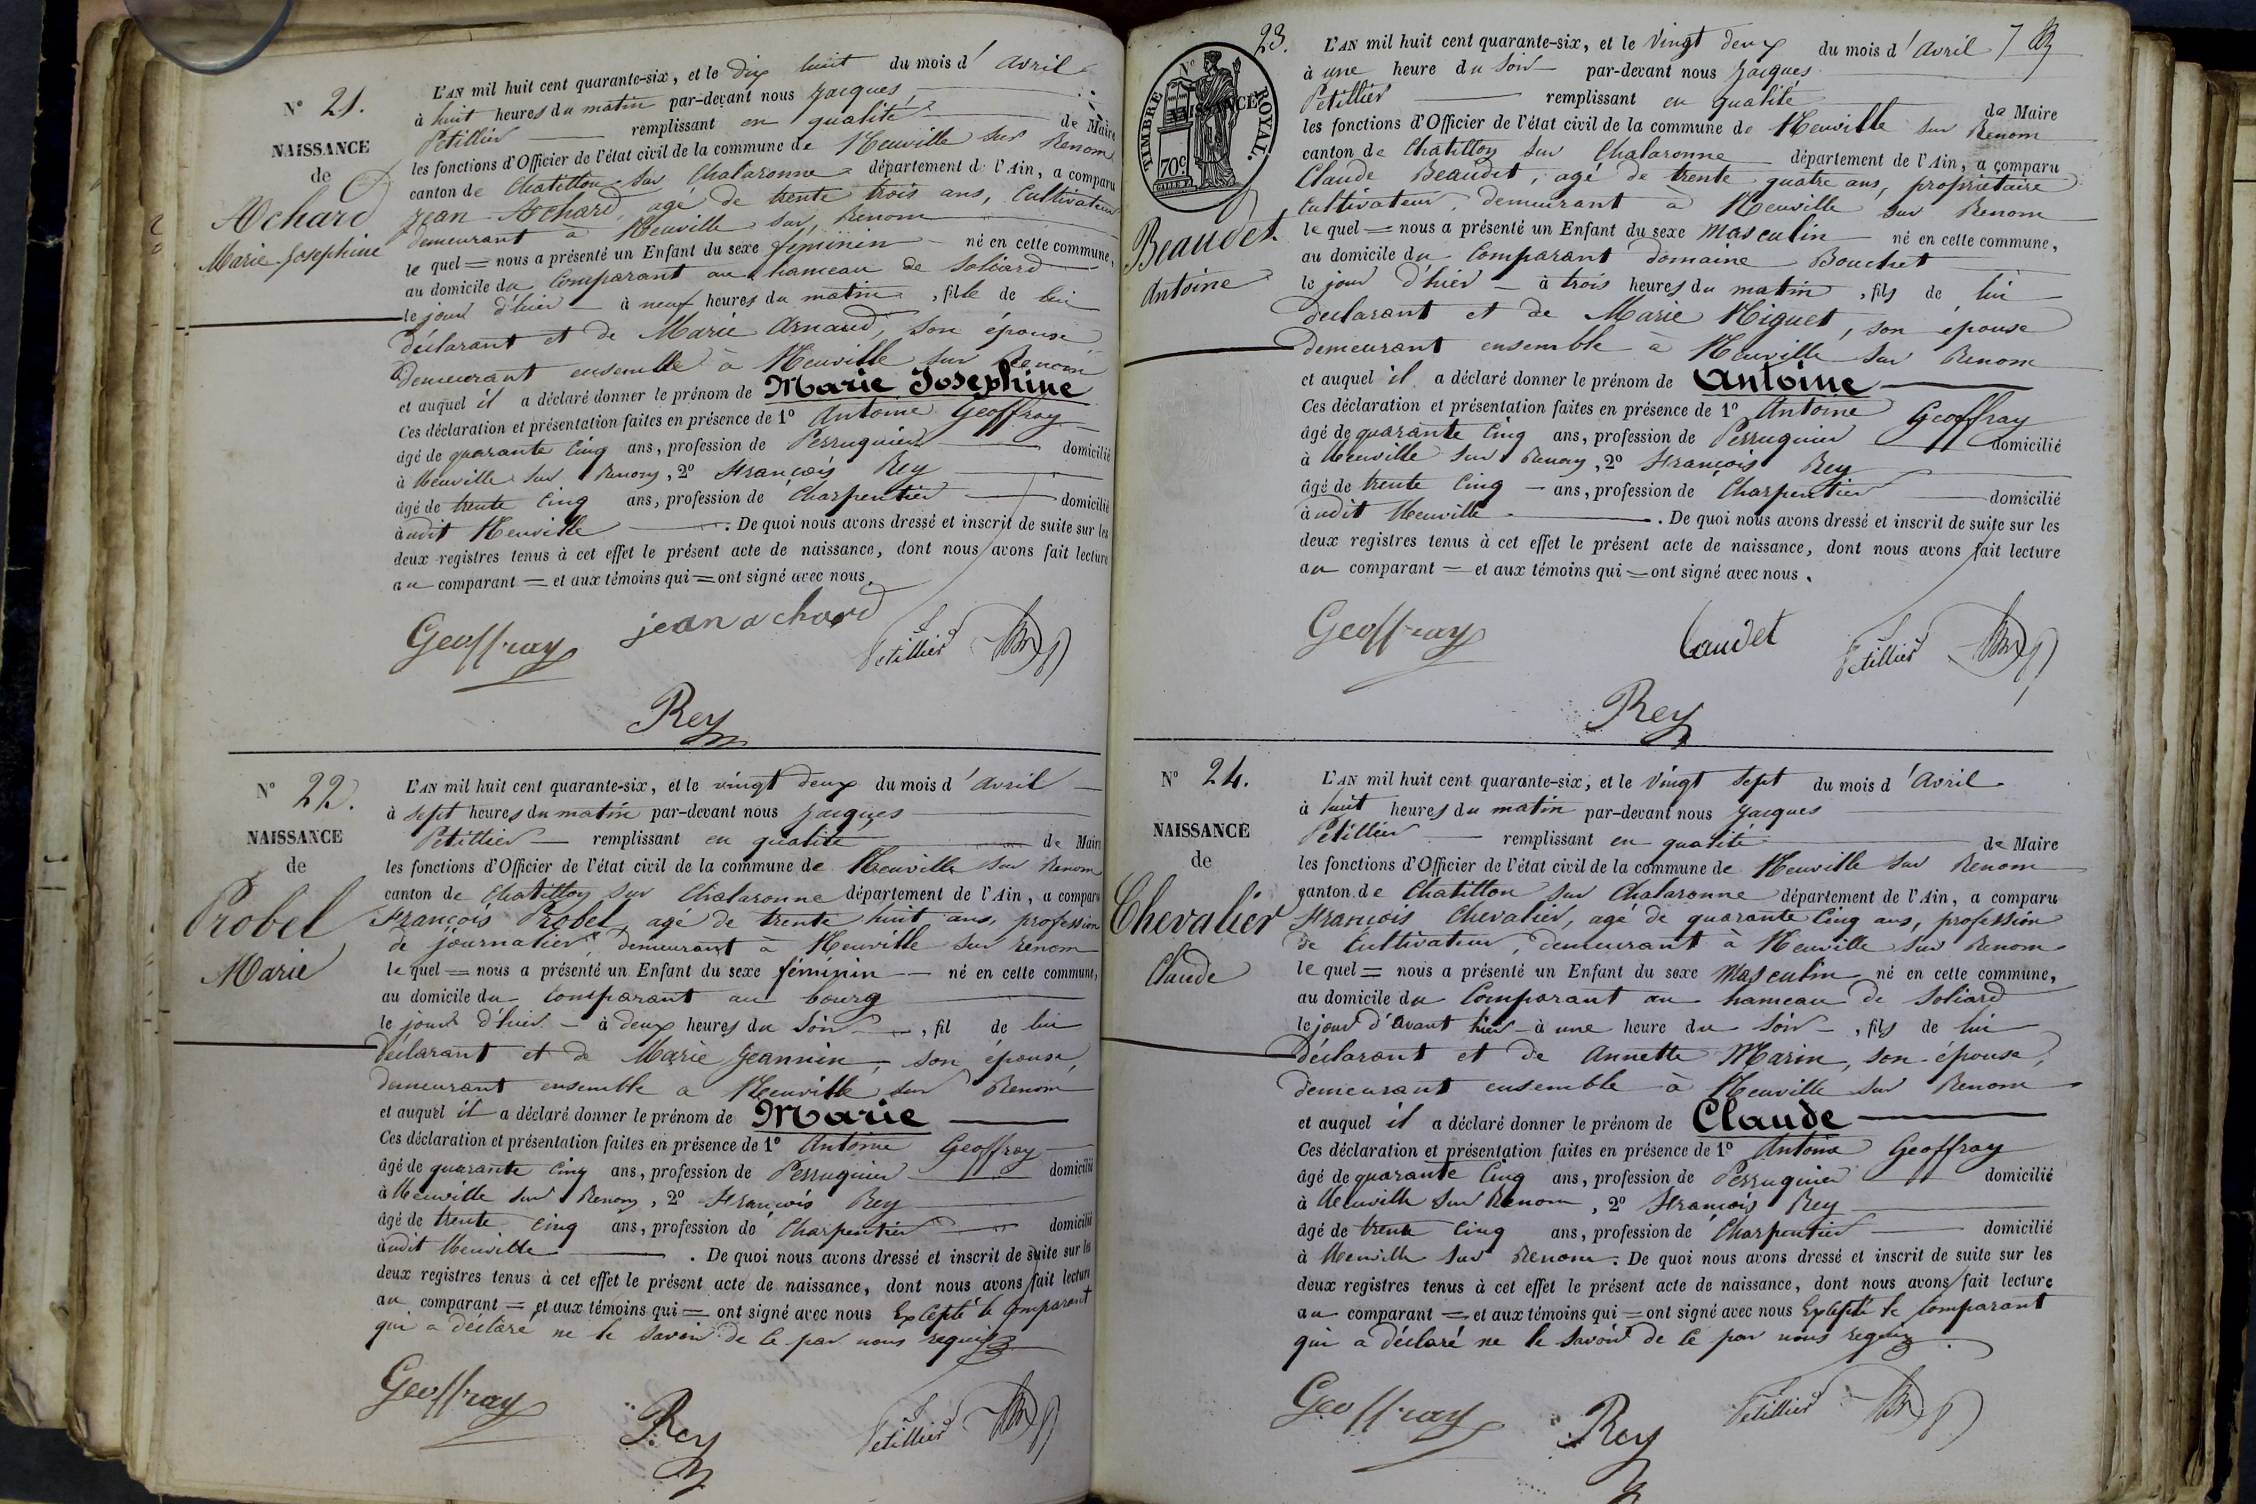 N° 21.
NAISSANCE
de
Achard
Marie Josephine
L'AN mil huit cent quarante-six, et le dix huit du mois d'avril
à huit heures du matin par-devant nous Jacques
Petillier remplissant en qualité de Maire
les fonctions d'Officier de l'état civil de la commune de Neuville sur Renom
canton de Chatillon sur Chalaronne département de l'Ain, a comparu
Jean Achard, agé de trente trois ans, Cultivateur
demeurant à Neuville sur Renom
le quel = nous a présenté un Enfant du sexe féminin né en cette commune,
au domicile du Comparant au hameau de Soliard
le jour d'hier à neuf heures du matin, fille de lui
déclarant et de Marie Arnaud, son épouse
demeurant ensemble à Neuville sur Renom
et auquel il a déclaré donner le prénom de Marie Josephine
Ces déclaration et présentation faites en présence de 1° Antoine Geoffray
âgé de quarante cinq ans, profession de Perruquier domicilié
à Neuville sur Renom, 2° François Rey
âgé de trente cinq ans, profession de Charpentier domicilié
audit Neuville. De quoi nous avons dressé et inscrit de suite sur les
deux registres tenus à cet effet le présent acte de naissance, dont nous avons fait lecture
au comparant = et aux témoins qui = ont signé avec nous.
Geoffray jean achard Petillier
Rey
N° 22.
NAISSANCE
de
Probel
Marie
L'AN mil huit cent quarante-six, et le vingt deux du mois d'avril
à sept heures du matin par-devant nous Jacques
Petillier remplissant en qualité de Maire
les fonctions d'Officier de l'état civil de la commune de Neuville sur Renom
canton de Chatillon sur Chalaronne département de l'Ain, a comparu
François Probel, agé de trente huit ans, profession
de journalier demeurant à Neuville sur renom
le quel = nous a présenté un Enfant du sexe féminin né en cette commune,
au domicile du Comparant au bourg
le jour d'hier à deux heures du soir, fil de lui
déclarant et de Marie Jeannin, son épouse,
demeurant ensemble à Neuville sur Renom
et auquel il a déclaré donner le prénom de Marie
Ces déclaration et présentation faites en présence de 1° Antoine Geoffray
âgé de quarante cinq ans, profession de Perruquier domicilié
à Neuville sur Renom, 2° François Rey
âgé de trente cinq ans, profession de Charpentier domicilié
audit Neuville. De quoi nous avons dressé et inscrit de suite sur les
deux registres tenus à cet effet le présent acte de naissance, dont nous avons fait lecture
au comparant = et aux témoins qui = ont signé avec nous Excepté le Comparant
qui a déclaré ne le savoir de ce par nous requis
Geoffray Rey Petillier
23.
TIMBRE ROYAL.
70c
NAISSANCE
Beaudet
Antoine
L'AN mil huit cent quarante-six, et le vingt deux du mois d'avril 7
à une heure du soir par-devant nous Jacques
Petillier remplissant en qualité de Maire
les fonctions d'Officier de l'état civil de la commune de Neuville sur Renom
canton de Chatillon sur Chalaronne département de l'Ain, a comparu
Claude Beaudet, agé de trente quatre ans, propriétaire
Cultivateur, demeurant à Neuville sur Renom
le quel = nous a présenté un Enfant du sexe masculin né en cette commune,
au domicile du Comparant domaine Bouchet
le jour d'hier à trois heures du matin, fils de lui
déclarant et de Marie Niguet, son épouse
demeurant ensemble à Neuville sur Renom
et auquel il a déclaré donner le prénom de Antoine
Ces déclaration et présentation faites en présence de 1° Antoine Geoffray
âgé de quarante cinq ans, profession de Perruquier domicilié
à Neuville sur Renom, 2° François Rey
âgé de trente cinq ans, profession de Charpentier domicilié
audit Neuville. De quoi nous avons dressé et inscrit de suite sur les
deux registres tenus à cet effet le présent acte de naissance, dont nous avons fait lecture
au comparant = et aux témoins qui = ont signé avec nous.
Geoffray baudet Petillier
Rey
N° 24.
NAISSANCE
de
Chevalier
Claude
L'AN mil huit cent quarante-six, et le vingt sept du mois d'avril
à huit heures du matin par-devant nous Jacques
Petillier remplissant en qualité de Maire
les fonctions d'Officier de l'état civil de la commune de Neuville sur Renom
canton de Chatillon sur Chalaronne département de l'Ain, a comparu
François Chevalier, agé de quarante cinq ans, profession
de Cultivateur, demeurant à Neuville sur Renom
le quel = nous a présenté un Enfant du sexe masculin né en cette commune,
au domicile du Comparant au hameau de Soliard
le jour d'avant hier à une heure du soir, fils de lui
déclarant et de Annette Marin, son épouse,
demeurant ensemble à Neuville sur Renom
et auquel il a déclaré donner le prénom de Claude
Ces déclaration et présentation faites en présence de 1° Antoine Geoffray
âgé de quarante cinq ans, profession de Perruquier domicilié
à Neuville sur Renom, 2° François Rey
âgé de trente cinq ans, profession de Charpentier domicilié
à Neuville sur Renom. De quoi nous avons dressé et inscrit de suite sur les
deux registres tenus à cet effet le présent acte de naissance, dont nous avons fait lecture
au comparant = et aux témoins qui = ont signé avec nous Excepté le Comparant
qui a déclaré ne le savoir de ce par nous requis.
Geoffray Rey Petillier